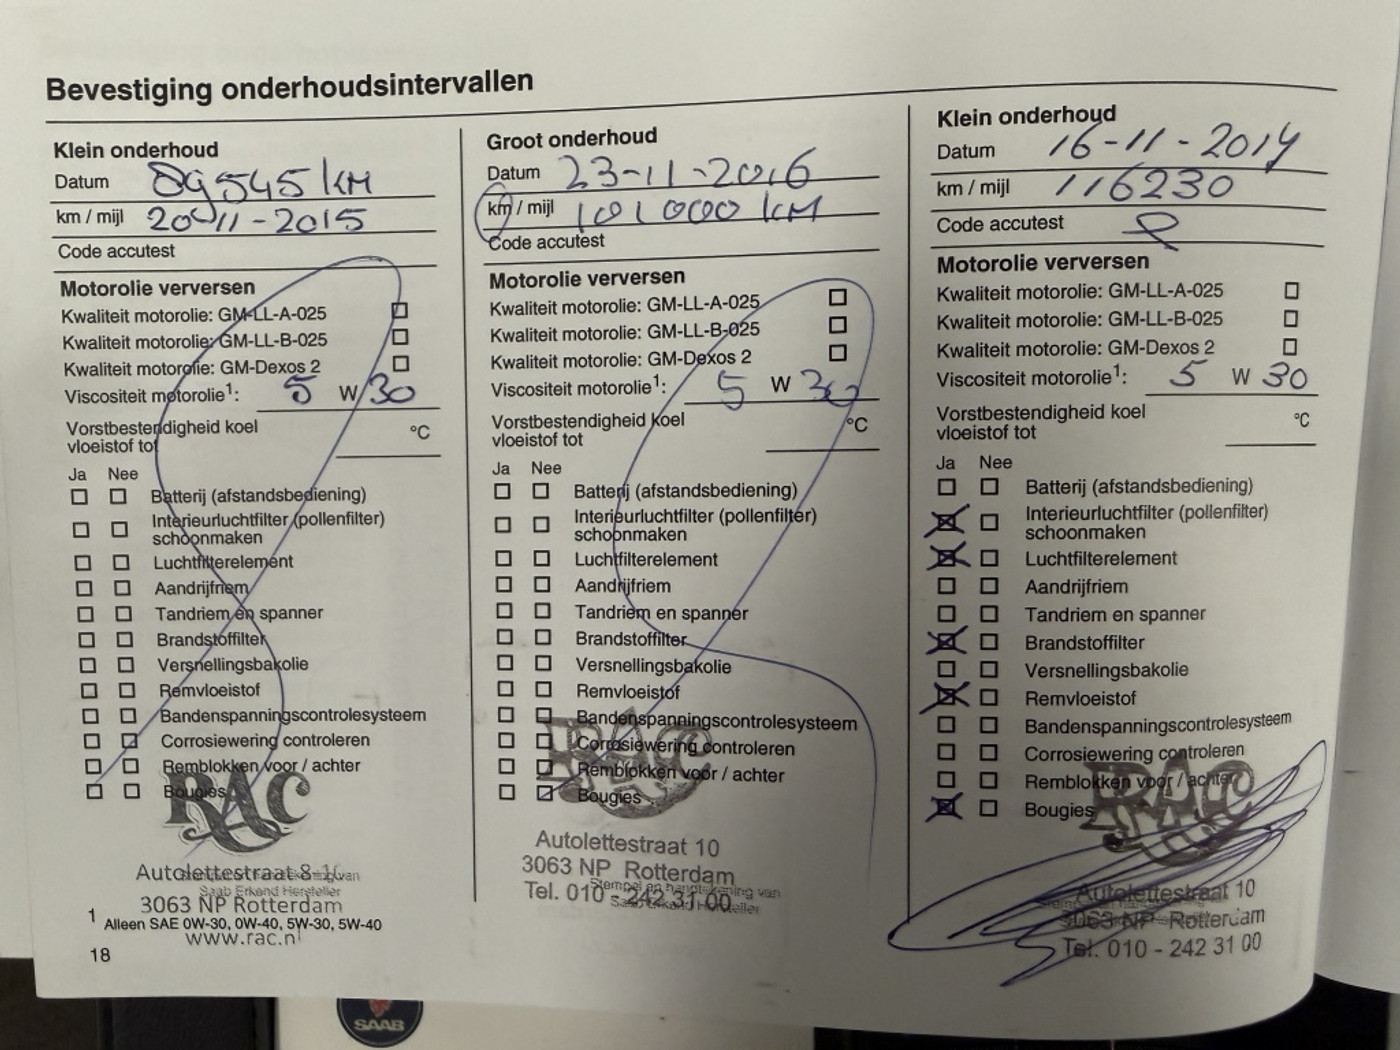 Bevestiging onderhoudsintervallen
Klein onderhoud
Datum 89545 KM
km / mijl 20-11-2015
Code accutest
Motorolie verversen
Kwaliteit motorolie: GM-LL-A-025
Kwaliteit motorolie: GM-LL-B-025
Kwaliteit motorolie: GM-Dexos 2
Viscositeit motorolie1: 5 W 30
Vorstbestendigheid koel
vloeistof tot °C
Ja Nee
Batterij (afstandsbediening)
Interieurluchtfilter (pollenfilter)
schoonmaken
Luchtfilterelement
Aandrijfriem
Tandriem en spanner
Brandstoffilter
Versnellingsbakolie
Remvloeistof
Bandenspanningscontrolesysteem
Corrosiewering controleren
Remblokken voor / achter
Bougies
RAC
Autolettestraat 8-10
Saab Erkend Hersteller
3063 NP Rotterdam
1 Alleen SAE 0W-30, 0W-40, 5W-30, 5W-40
www.rac.nl
18
Groot onderhoud
Datum 23-11-2016
km / mijl 101000 KM
Code accutest
Motorolie verversen
Kwaliteit motorolie: GM-LL-A-025
Kwaliteit motorolie: GM-LL-B-025
Kwaliteit motorolie: GM-Dexos 2
Viscositeit motorolie1: 5 W 30
Vorstbestendigheid koel
vloeistof tot °C
Ja Nee
Batterij (afstandsbediening)
Interieurluchtfilter (pollenfilter)
schoonmaken
Luchtfilterelement
Aandrijfriem
Tandriem en spanner
Brandstoffilter
Versnellingsbakolie
Remvloeistof
Bandenspanningscontrolesysteem
Corrosiewering controleren
Remblokken voor / achter
Bougies
RAC
Autolettestraat 10
3063 NP Rotterdam
Stempel en handtekening van
Tel. 010 - 242 31 00
Klein onderhoud
Datum 16-11-2014
km / mijl 116230
Code accutest
Motorolie verversen
Kwaliteit motorolie: GM-LL-A-025
Kwaliteit motorolie: GM-LL-B-025
Kwaliteit motorolie: GM-Dexos 2
Viscositeit motorolie1: 5 W 30
Vorstbestendigheid koel
vloeistof tot °C
Ja Nee
Batterij (afstandsbediening)
Interieurluchtfilter (pollenfilter)
schoonmaken
Luchtfilterelement
Aandrijfriem
Tandriem en spanner
Brandstoffilter
Versnellingsbakolie
Remvloeistof
Bandenspanningscontrolesysteem
Corrosiewering controleren
Remblokken voor / achter
Bougies
RAC
Autolettestraat 10
3063 NP Rotterdam
Tel. 010 - 242 31 00
SAAB